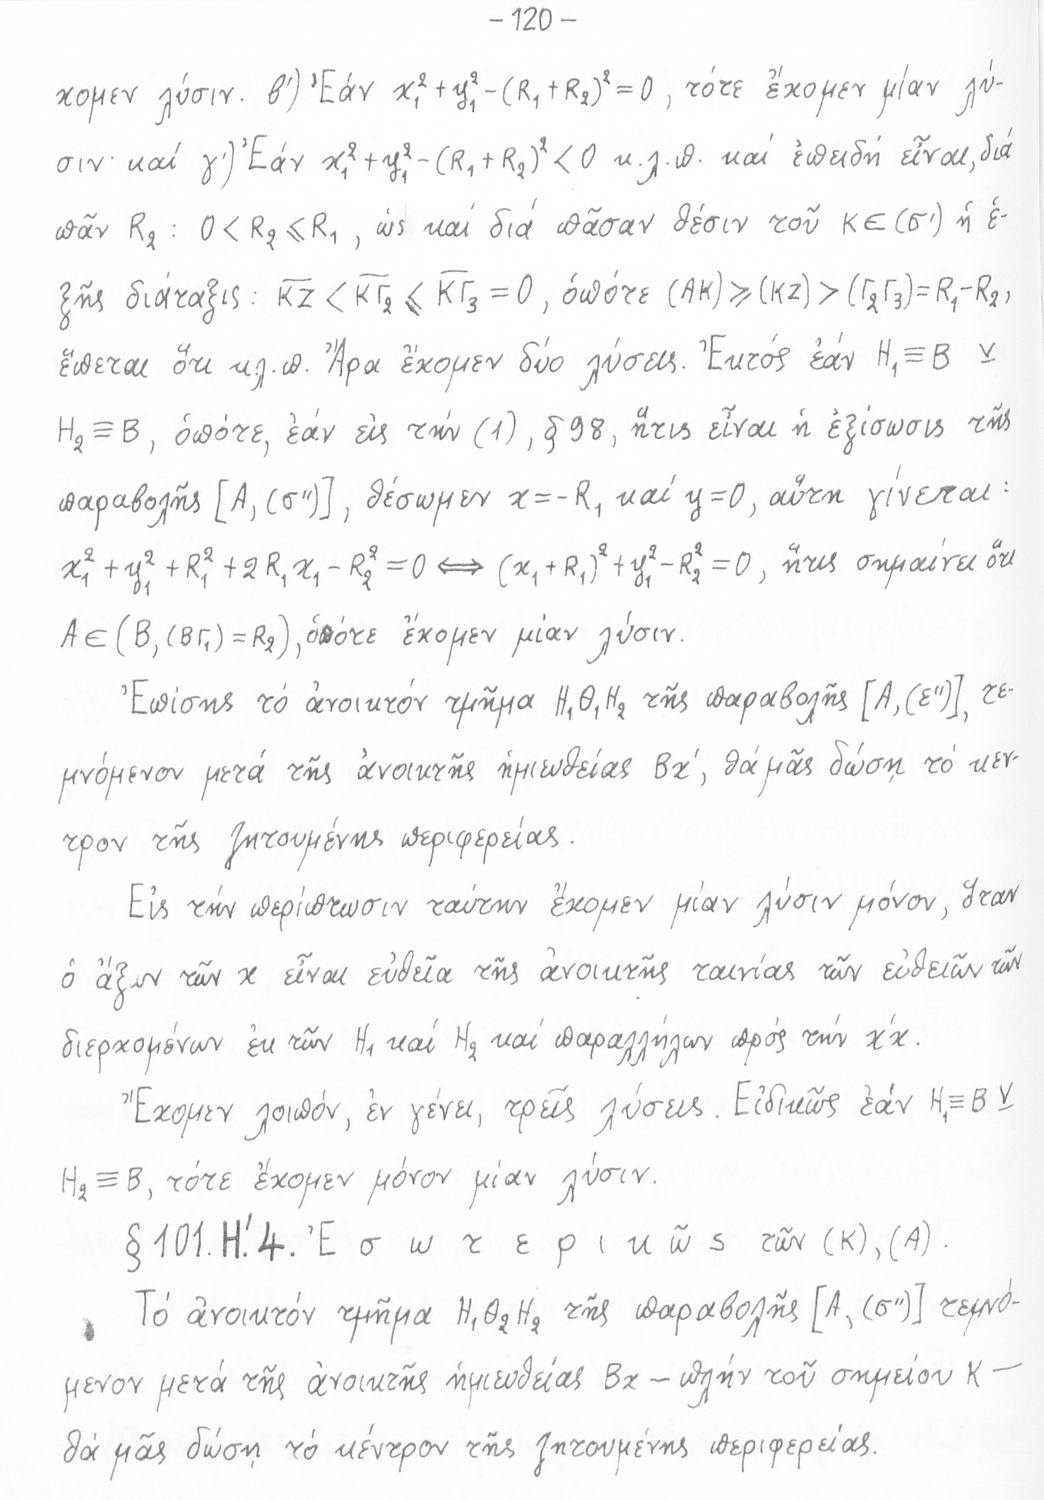 -120-
χομεν λύσιν. β') Ἐάν x₁²+y₁²-(R₁+R₂)²=0, τότε ἔχομεν μίαν λύ-
σιν· καί γ') Ἐάν x₁²+y₁²-(R₁+R₂)²<0 κ.λ.π. καί ἐπειδή εἶναι, διά
πᾶν R₂: 0<R₂⩽R₁, ὡς καί διά πᾶσαν θέσιν τοῦ K∈(σ') ἡ ἑ-
ξῆς διάταξις: K̅Z̅<K̅Γ̅₂⩽K̅Γ̅₃=0, ὁπότε (AK)⩾(KZ)>(Γ₂Γ₃)=R₁-R₂,
ἕπεται ὅτι κ.λ.π. Ἄρα ἔχομεν δύο λύσεις. Ἐκτός ἐάν H₁≡B ⊻
H₂≡B, ὁπότε, ἐάν εἰς τήν (1), §98, ἥτις εἶναι ἡ ἐξίσωσις τῆς
παραβολῆς [A,(σ'')], θέσωμεν x=-R₁ καί y=0, αὕτη γίνεται:
x₁²+y₁²+R₁²+2R₁x₁-R₂²=0⟺(x₁+R₁)²+y₁²-R₂²=0, ἥτις σημαίνει ὅτι
A∈(B,(BΓ₁)=R₂), ὁπότε ἔχομεν μίαν λύσιν.
Ἐπίσης τό ἀνοικτόν τμῆμα H₁Θ₁H₂ τῆς παραβολῆς [A,(ε'')], τε-
μνόμενον μετά τῆς ἀνοικτῆς ἡμιευθείας Bx', θά μᾶς δώσῃ τό κεν-
τρον τῆς ζητουμένης περιφερείας.
Εἰς τήν περίπτωσιν ταύτην ἔχομεν μίαν λύσιν μόνον, ὅταν
ὁ ἄξων τῶν x εἶναι εὐθεῖα τῆς ἀνοικτῆς ταινίας τῶν εὐθειῶν τῶν
διερχομένων ἐκ τῶν H₁ καί H₂ καί παραλλήλων πρός τήν x'x.
Ἔχομεν λοιπόν, ἐν γένει, τρεῖς λύσεις. Εἰδικῶς ἐάν H₁≡B ⊻
H₂≡B, τότε ἔχομεν μόνον μίαν λύσιν.
§101. H'.4. Ἐσωτερικῶς τῶν (K),(A).
Τό ἀνοικτόν τμῆμα H₁Θ₂H₂ τῆς παραβολῆς [A,(σ'')] τεμνό-
μενον μετά τῆς ἀνοικτῆς ἡμιευθείας Bx – πλήν τοῦ σημείου K –
θά μᾶς δώσῃ τό κέντρον τῆς ζητουμένης περιφερείας.